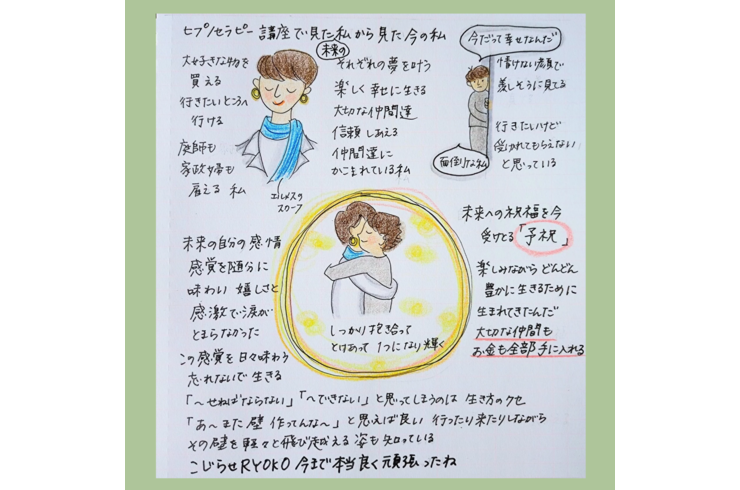 ヒプノセラピー講座で見た未来の私から見た今の私
大好きな物を
買える
行きたいところへ
行ける
庭師も
家政婦も
雇える 私
エルメスの
スカーフ
それぞれの夢を叶う
楽しく幸せに生きる
大切な仲間達
信頼しあえる
仲間達に
かこまれている私
今だって幸せなんだ
情けない顔で
羨しそうに見てる
行きたいけど
受けれてもらえない
と思っている
面倒くさな私
未来の自分の感情
感覚を随分に
味わい 嬉しさと
感激で涙が
とまらなかった
この感覚を日々味わう
忘れないで生きる
しっかり抱き合って
とけあって1つになり輝く
未来への祝福を今
受けとる「予祝」
楽しみながらどんどん
豊かに生きるために
生まれてきたんだ
大切な仲間も
お金も全部手に入れる
「~せねばならない」「~できない」と思ってしまうのは 生き方のクセ
「あ~また 壁 作ってんな~」と思えば良い 行ったり来たりしながら
その壁を軽々と飛び越える姿も知っている
こじらせRYOKO 今まで本当良く頑張ったね